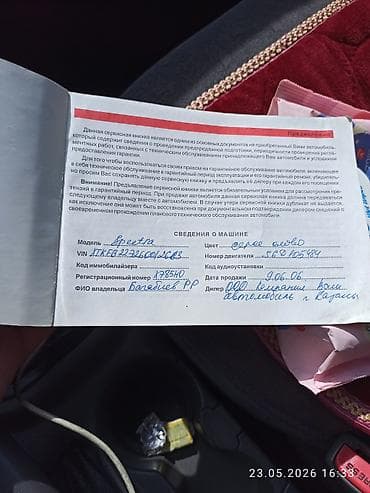 Предисловие
Данная сервисная книжка является одним из основных документов на приобретенный Вами автомобиль,
который содержит сведения о проведении предпродажной подготовки, периодичности проведения регла-
ментных работ, связанных с техническим обслуживанием принадлежащего Вам автомобиля и условиям
предоставления гарантии.
Для того чтобы воспользоваться своим правом на гарантийное обслуживание автомобиля, включающее
в себя техническое обслуживание в гарантийный период эксплуатации и его гарантийный ремонт, убедитель-
но просим Вас сохранить данную сервисную книжку и предъявлять её дилеру при каждом его посещении.
Внимание! Предъявление сервисной книжки является обязательным условием для рассмотрения пре-
тензий в гарантийный период. При смене владельца данная сервисная книжка должна передаваться
следующему владельцу вместе с автомобилем. В случае утери дубликат не выдается,
как исключение она может быть восстановлена при документальном подтверждении дилером сведений о
своевременном прохождении планового технического обслуживания автомобиля.
СВЕДЕНИЯ О МАШИНЕ
Модель Spectra Цвет серое олово
VIN Номер двигателя
Код иммобилайзера Код аудиоустановки
Регистрационный номер Х785АО Дата продажи 9.06.06
ФИО владельца РР Дилер ООО Компания
автомобиль г. Казань
23.05.2026 16:33